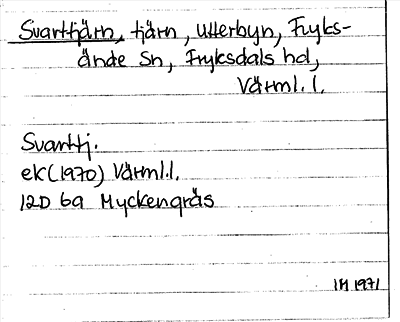 Svarttjärn, tjärn, Utterbyn, Fryks-
ände Sn, Fryksdals hd,
Värml. l.
Svarttj.
ek (1970) Värml.l.
12D 6a Myckengräs
IH 1971